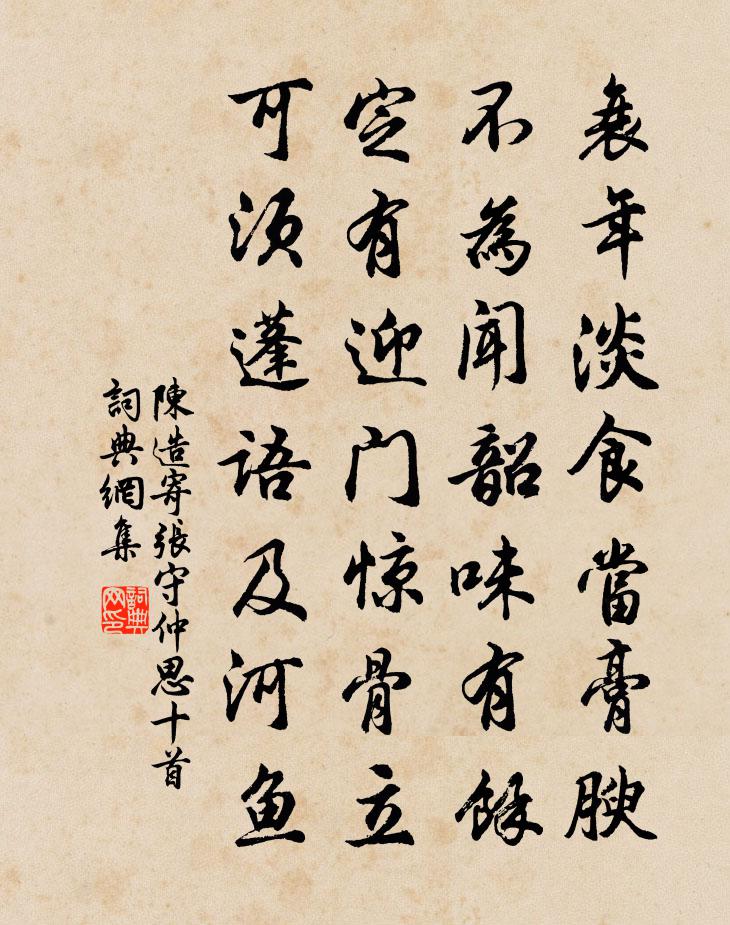 衰年淡食當膏腴
不為聞韶味有餘
定有迎门惊骨立
可须蓬語及河鱼
陳造寄張守仲思十首
詞典網集
詞典网印